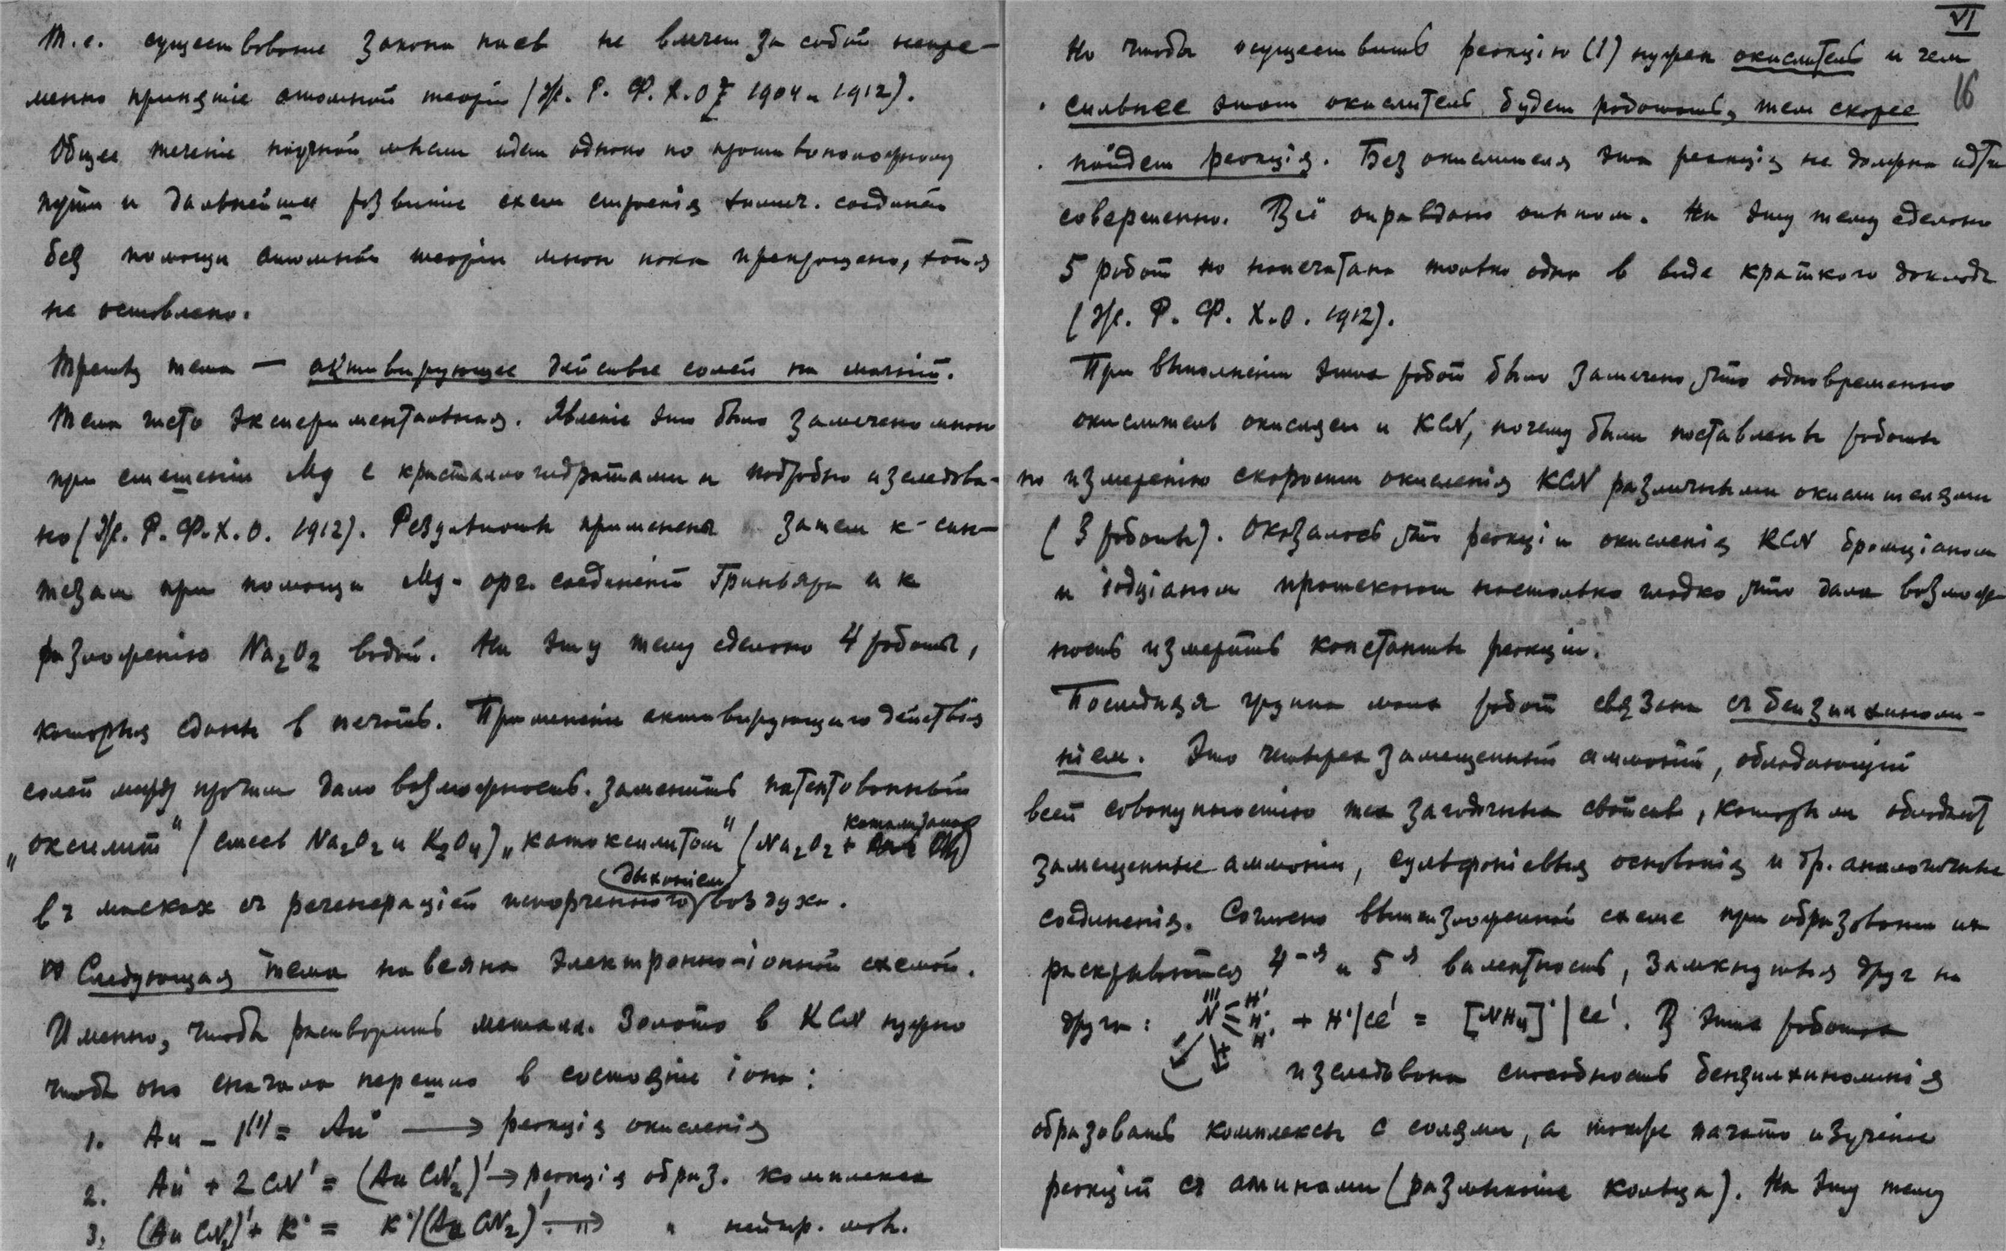 Т.е. существование закона паев не влечет за собой непре-
менно принятіе атомной теоріи (Ж. Р. Ф. Х. О. 1904 и 1912).
Общее теченіе научной мысли идет однако по противоположному
пути и дальнейшее развитіе схем строенія химич. соединен.
без помощи атомной теоріи мною пока прекращено, хотя
не оставлено.
Третья тема — активирующее действіе солей на магній.
Тема чисто экспериментальная. Явленіе это было замечено мною
при смешеніи Mg с кристаллогидратами и подробно изследова-
но (Ж. Р. Ф. Х. О. 1912). Результаты применены затем к син-
тезам при помощи Mg-орг. соединеній Гриньяра и к
разложенію Na2O2 водой. На эту тему сделано 4 работы,
которыя сданы в печать. Применение активирующаго действія
солей между прочим дало возможность заменить патентованный
„оксилит" (смесь Na2O2 и K2O4) „катоксилитом" (Na2O2 + катализатор)
въ масках съ регенераціей испорченного дыханіем воздуха.
Следующая тема навеяна электронно-іонной схемой.
Именно, чтобы растворить металл. золото в KCN нужно
чтобы оно сначала перешло в состояніе іона:
1. Au – 1(') = Au˙ ⟶ реакція окисленія
2. Au˙ + 2CN' = (AuCN2)' → реакція образ. комплекса
3. (AuCN2)' + K˙ = K˙/(AuCN2)' → " нейтр. мол.
VI
16
Но чтобы осуществить реакцію (1) нужен окислитель и чем
сильнее этот окислитель будет работать, тем скорее
пойдет реакція. Без окислителя эта реакція не должна идти
совершенно. Всё оправдано опытом. На эту тему сделано
5 работ но напечатана только одна в виде краткого доклада
(Ж. Р. Ф. Х. О. 1912).
При выполнении этих работ было замечено, что одновременно
окислитель окисляет и KCN, почему были поставлены работы
по измеренію скорости окисленія KCN различными окислителями
(3 работы). Оказалось, что реакціи окисленія KCN бромціаном
и іодціаном протекают настолько гладко, что дали возмож-
ность измерить константы реакціи.
Последняя группа моих работ связана съ бензилхиноли-
ніем. Это четырех замещенный аммоній, обладающій
всей совокупностью тех загадочных свойств, которыми обладают
замещенные аммоніи, сульфоніевыя основанія и др. аналогичные
соединенія. Согласно вышеизложенной схеме при образовании их
раскрываются 4-я и 5-я валентность, замкнутыя друг на
друга: N''' ≡ H˙ H˙ H˙ + H˙/Cl' = [NH4]˙/Cl'. В этих работах
изследована способность бензилхинолинія
образовать комплексы с солями, а также начато изученіе
реакцій съ аминами (размыканіе кольца). На эту тему